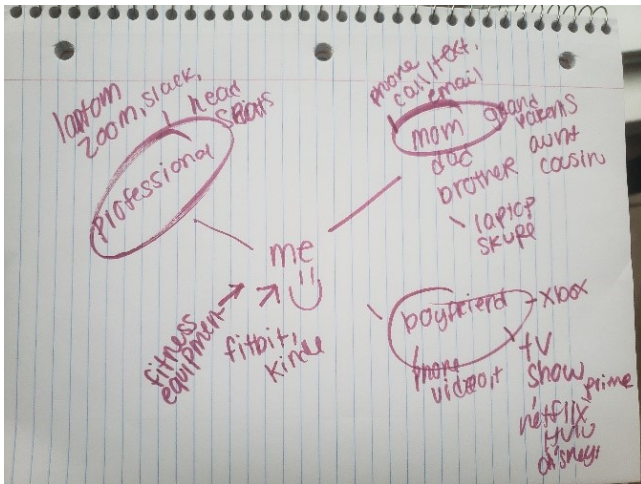 laptom
zoom, slack,
head
sears
professional
phone
call, text,
email
mom
grand
parents
dad
aunt
brother
cousin
laptop
skype
me
fitness
equipment
fitbit,
kindle
boyfriend
-xbox
phone
video
tv
show
prime
netflix
Hulu
disney+